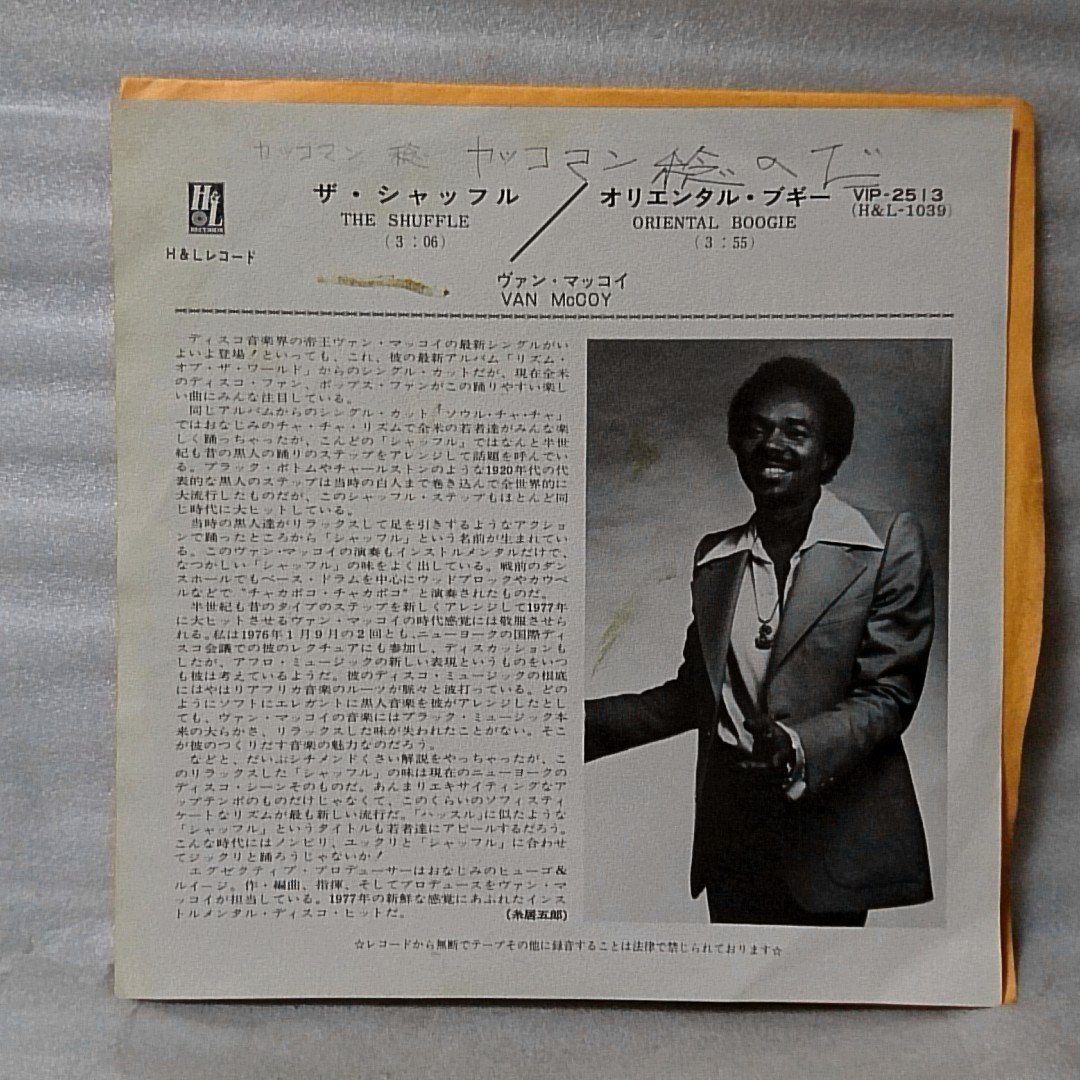 カッコマン 稔 ヤッコマン 稔のだ
ザ・シャッフル
THE SHUFFLE
(3：06)
オリエンタル・ブギー
ORIENTAL BOOGIE
(3：55)
VIP-2513
(H&L-1039)
H&L
RECORDS
H&Lレコード
ヴァン・マッコイ
VAN McCOY
ディスコ音楽界の帝王ヴァン・マッコイの最新シングルがい
よいよ登場！といっても、これ、彼の最新アルバム「リズム・
オブ・ザ・ワールド」からのシングル・カットだが、現在全米
のディスコ・ファン、ポップス・ファンがこの踊りやすい楽し
い曲にみんな注目している。
同じアルバムからのシングル・カット「ソウル・チャ・チャ」
ではおなじみのチャ・チャ・リズムで全米の若者達がみんな楽
しく踊っちゃったが、こんどの「シャッフル」ではなんと半世
紀も昔の黒人の踊りのステップをアレンジして話題を呼んでい
る。ブラック・ボトムやチャールストンのような1920年代の代
表的な黒人のステップは当時の白人まで巻き込んで全世界的に
大流行したものだが、このシャッフル・ステップもほとんど同
じ時代に大ヒットしている。
当時の黒人達がリラックスして足を引きずるようなアクショ
ンで踊ったところから「シャッフル」という名前が生まれてい
る。このヴァン・マッコイの演奏もインストルメンタルだけで、
なつかしい「シャッフル」の味をよく出している。戦前のダン
スホールでもベース・ドラムを中心にウッドブロックやカウベ
ルなどで“チャカポコ・チャカポコ”と演奏されたものだ。
半世紀も昔のタイプのステップを新しくアレンジして1977年
に大ヒットさせるヴァン・マッコイの時代感覚には敬服させら
れる。私は1976年1月9月の2回とも、ニューヨークの国際ディ
スコ会議での彼のレクチュアにも参加し、ディスカッションも
したが、アフロ・ミュージックの新しい表現というものをいつ
も彼は考えているようだ。彼のディスコ・ミュージックの根底
にはやはりアフリカ音楽のルーツが脈々と波打っている。どの
ようにソフトにエレガントに黒人音楽を彼がアレンジしたとし
ても、ヴァン・マッコイの音楽にはブラック・ミュージック本
来の大らかさ、リラックスした味が失われたことがない。そこ
が彼のつくりだす音楽の魅力なのだろう。
などと、だいぶシチメンドくさい解説をやっちゃったが、こ
のリラックスした「シャッフル」の味は現在のニューヨークの
ディスコ・シーンそのものだ。あんまりエキサイティングなア
ップテンポのものだけじゃなくて、このくらいのソフィスティ
ケートなリズムが最も新しい流行だ。「ハッスル」に似たような
「シャッフル」というタイトルも若者達にアピールするだろう。
こんな時代にはノンビリ、ユックリと「シャッフル」に合わせ
てジックリと踊ろうじゃないか！
エグゼクティブ・プロデューサーはおなじみのヒューゴ&
ルイージ。作・編曲、指揮、そしてプロデュースをヴァン・マ
ッコイが担当している。1977年の新鮮な感覚にあふれたインス
トルメンタル・ディスコ・ヒットだ。
(糸居五郎)
☆レコードから無断でテープその他に録音することは法律で禁じられております☆